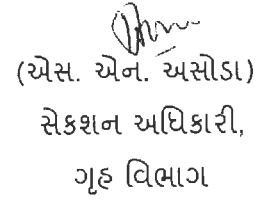 (એસ. એન. અસોડા)
સેકશન અધિકારી,
ગૃહ વિભાગ